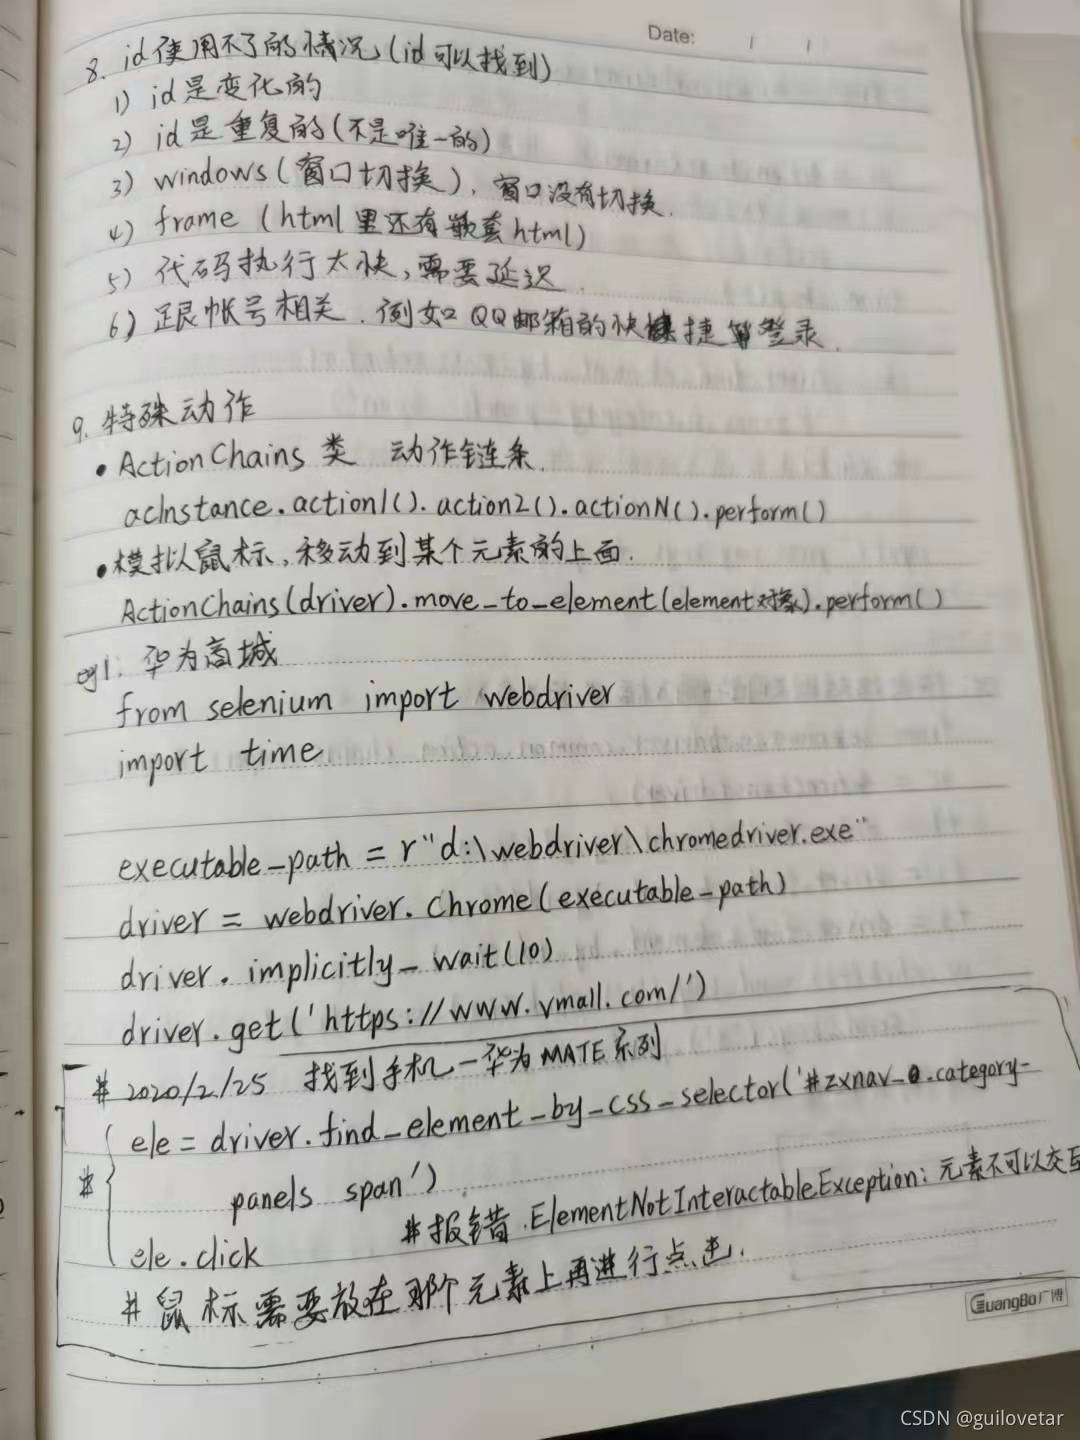 Date: / /
8. id使用不了的情况,(id可以找到)
1) id是变化的
2) id是重复的(不是唯一的)
3) windows(窗口切换), 窗口没有切换.
4) frame (html里还有嵌套html)
5) 代码执行太快,需要延迟.
6) 跟帐号相关. 例如QQ邮箱的快捷登录.
9. 特殊动作
• ActionChains 类 动作链条.
acInstance.action1().action2().actionN().perform()
• 模拟鼠标,移动到某个元素的上面.
ActionChains(driver).move_to_element(element对象).perform()
eg1. 华为商城
from selenium import webdriver
import time
executable_path = r"d:\webdriver\chromedriver.exe"
driver = webdriver.Chrome(executable_path)
driver.implicitly_wait(10)
driver.get('https://www.vmall.com/')
# 2020/2/25 找到手机-华为MATE系列
ele = driver.find_element_by_css_selector('#zxnav_0.category-
# panels span')
#报错.ElementNotInteractableException: 元素不可以交互
ele.click
# 鼠标需要放在那个元素上再进行点击.
GuangBo广博
CSDN @guilovetar